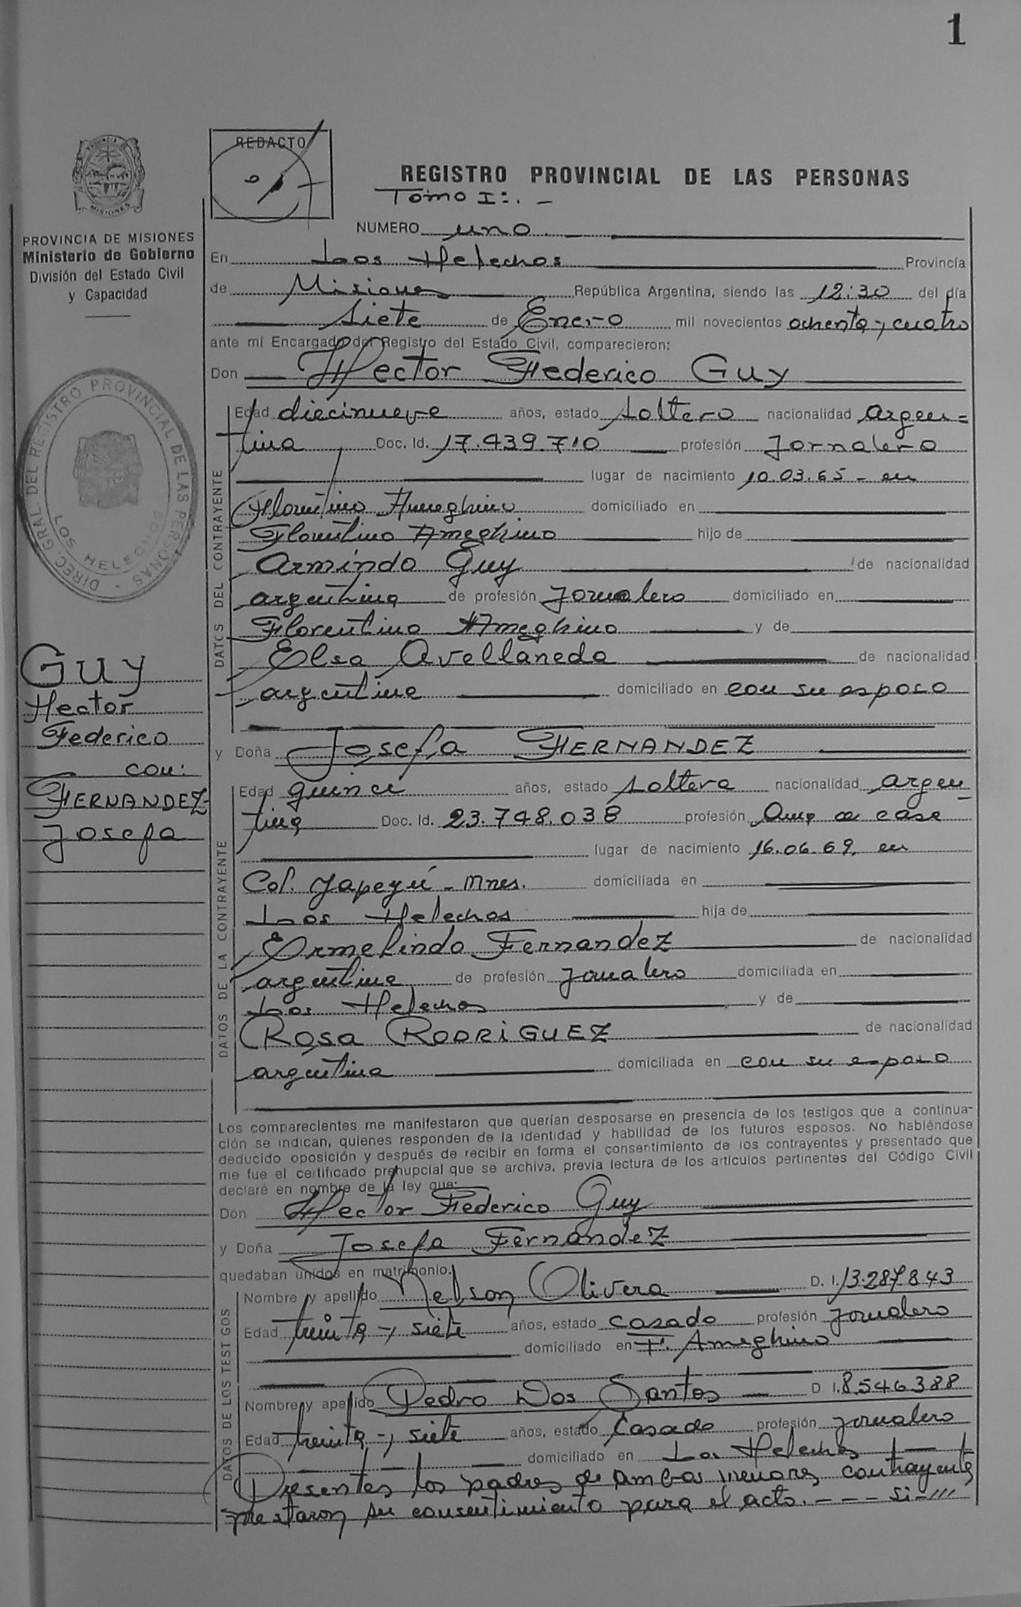 1
REDACTO
REGISTRO PROVINCIAL DE LAS PERSONAS
Tomo I:. -
PROVINCIA DE MISIONES
Ministerio de Gobierno
División del Estado Civil
y Capacidad
NUMERO uno.
En Los Helechos Provincia
de Misiones República Argentina, siendo las 12:30 del día
Siete de Enero mil novecientos ochenta y cuatro
ante mi Encargado del Registro del Estado Civil, comparecieron:
Don Hector Federico Guy
DIREC. GRAL DEL REGISTRO PROVINCIAL DE LAS PERSONAS -
LOS HELECHOS
Guy
Hector
Federico
con:
FERNANDEZ-
Josefa
DATOS DEL CONTRAYENTE
Edad diecinueve años, estado soltero nacionalidad argen=
tina Doc. Id. 17.439.710 profesión Jornalero
lugar de nacimiento 10.03.65 - en
Florentino Ameghino domiciliado en
Florentino Ameghino hijo de
Armindo Guy de nacionalidad
argentina de profesión Jornalero domiciliado en
Florentino Ameghino y de
Elsa Avellaneda de nacionalidad
argentina domiciliado en con su esposo
y Doña Josefa FERNANDEZ
DATOS DE LA CONTRAYENTE
Edad quince años, estado soltera nacionalidad argen-
tina Doc. Id. 23.748.038 profesión Ama de casa
lugar de nacimiento 16.06.69, en
Col. Yapeyú - Mnes. domiciliada en
Los Helechos hija de
Ermelindo Fernandez de nacionalidad
argentina de profesión Jornalero domiciliada en
Los Helechos y de
ROSA RODRIGUEZ de nacionalidad
argentina domiciliada en con su esposo
Los comparecientes me manifestaron que querían desposarse en presencia de los testigos que a continua-
ción se indican, quienes responden de la identidad y habilidad de los futuros esposos. No habiéndose
deducido oposición y después de recibir en forma el consentimiento de los contrayentes y presentado que
me fue el certificado prenupcial que se archiva, previa lectura de los artículos pertinentes del Código Civil
declaré en nombre de la ley que:
Don Hector Federico Guy
y Doña Josefa Fernandez
quedaban unidos en matrimonio.
DATOS DE LOS TESTIGOS
Nombre y apellido Nelson Olivera D. I. 13.287.843
Edad treinta y siete años, estado casado profesión Jornalero
domiciliado en F. Ameghino
Nombre y apellido Pedro Dos Santos D I. 8.546.388
Edad treinta y siete años, estado Casado profesión Jornalero
domiciliado en Los Helechos
Presentes los padres de ambos menores contrayentes
prestaron su consentimiento para el acto. - - - si-